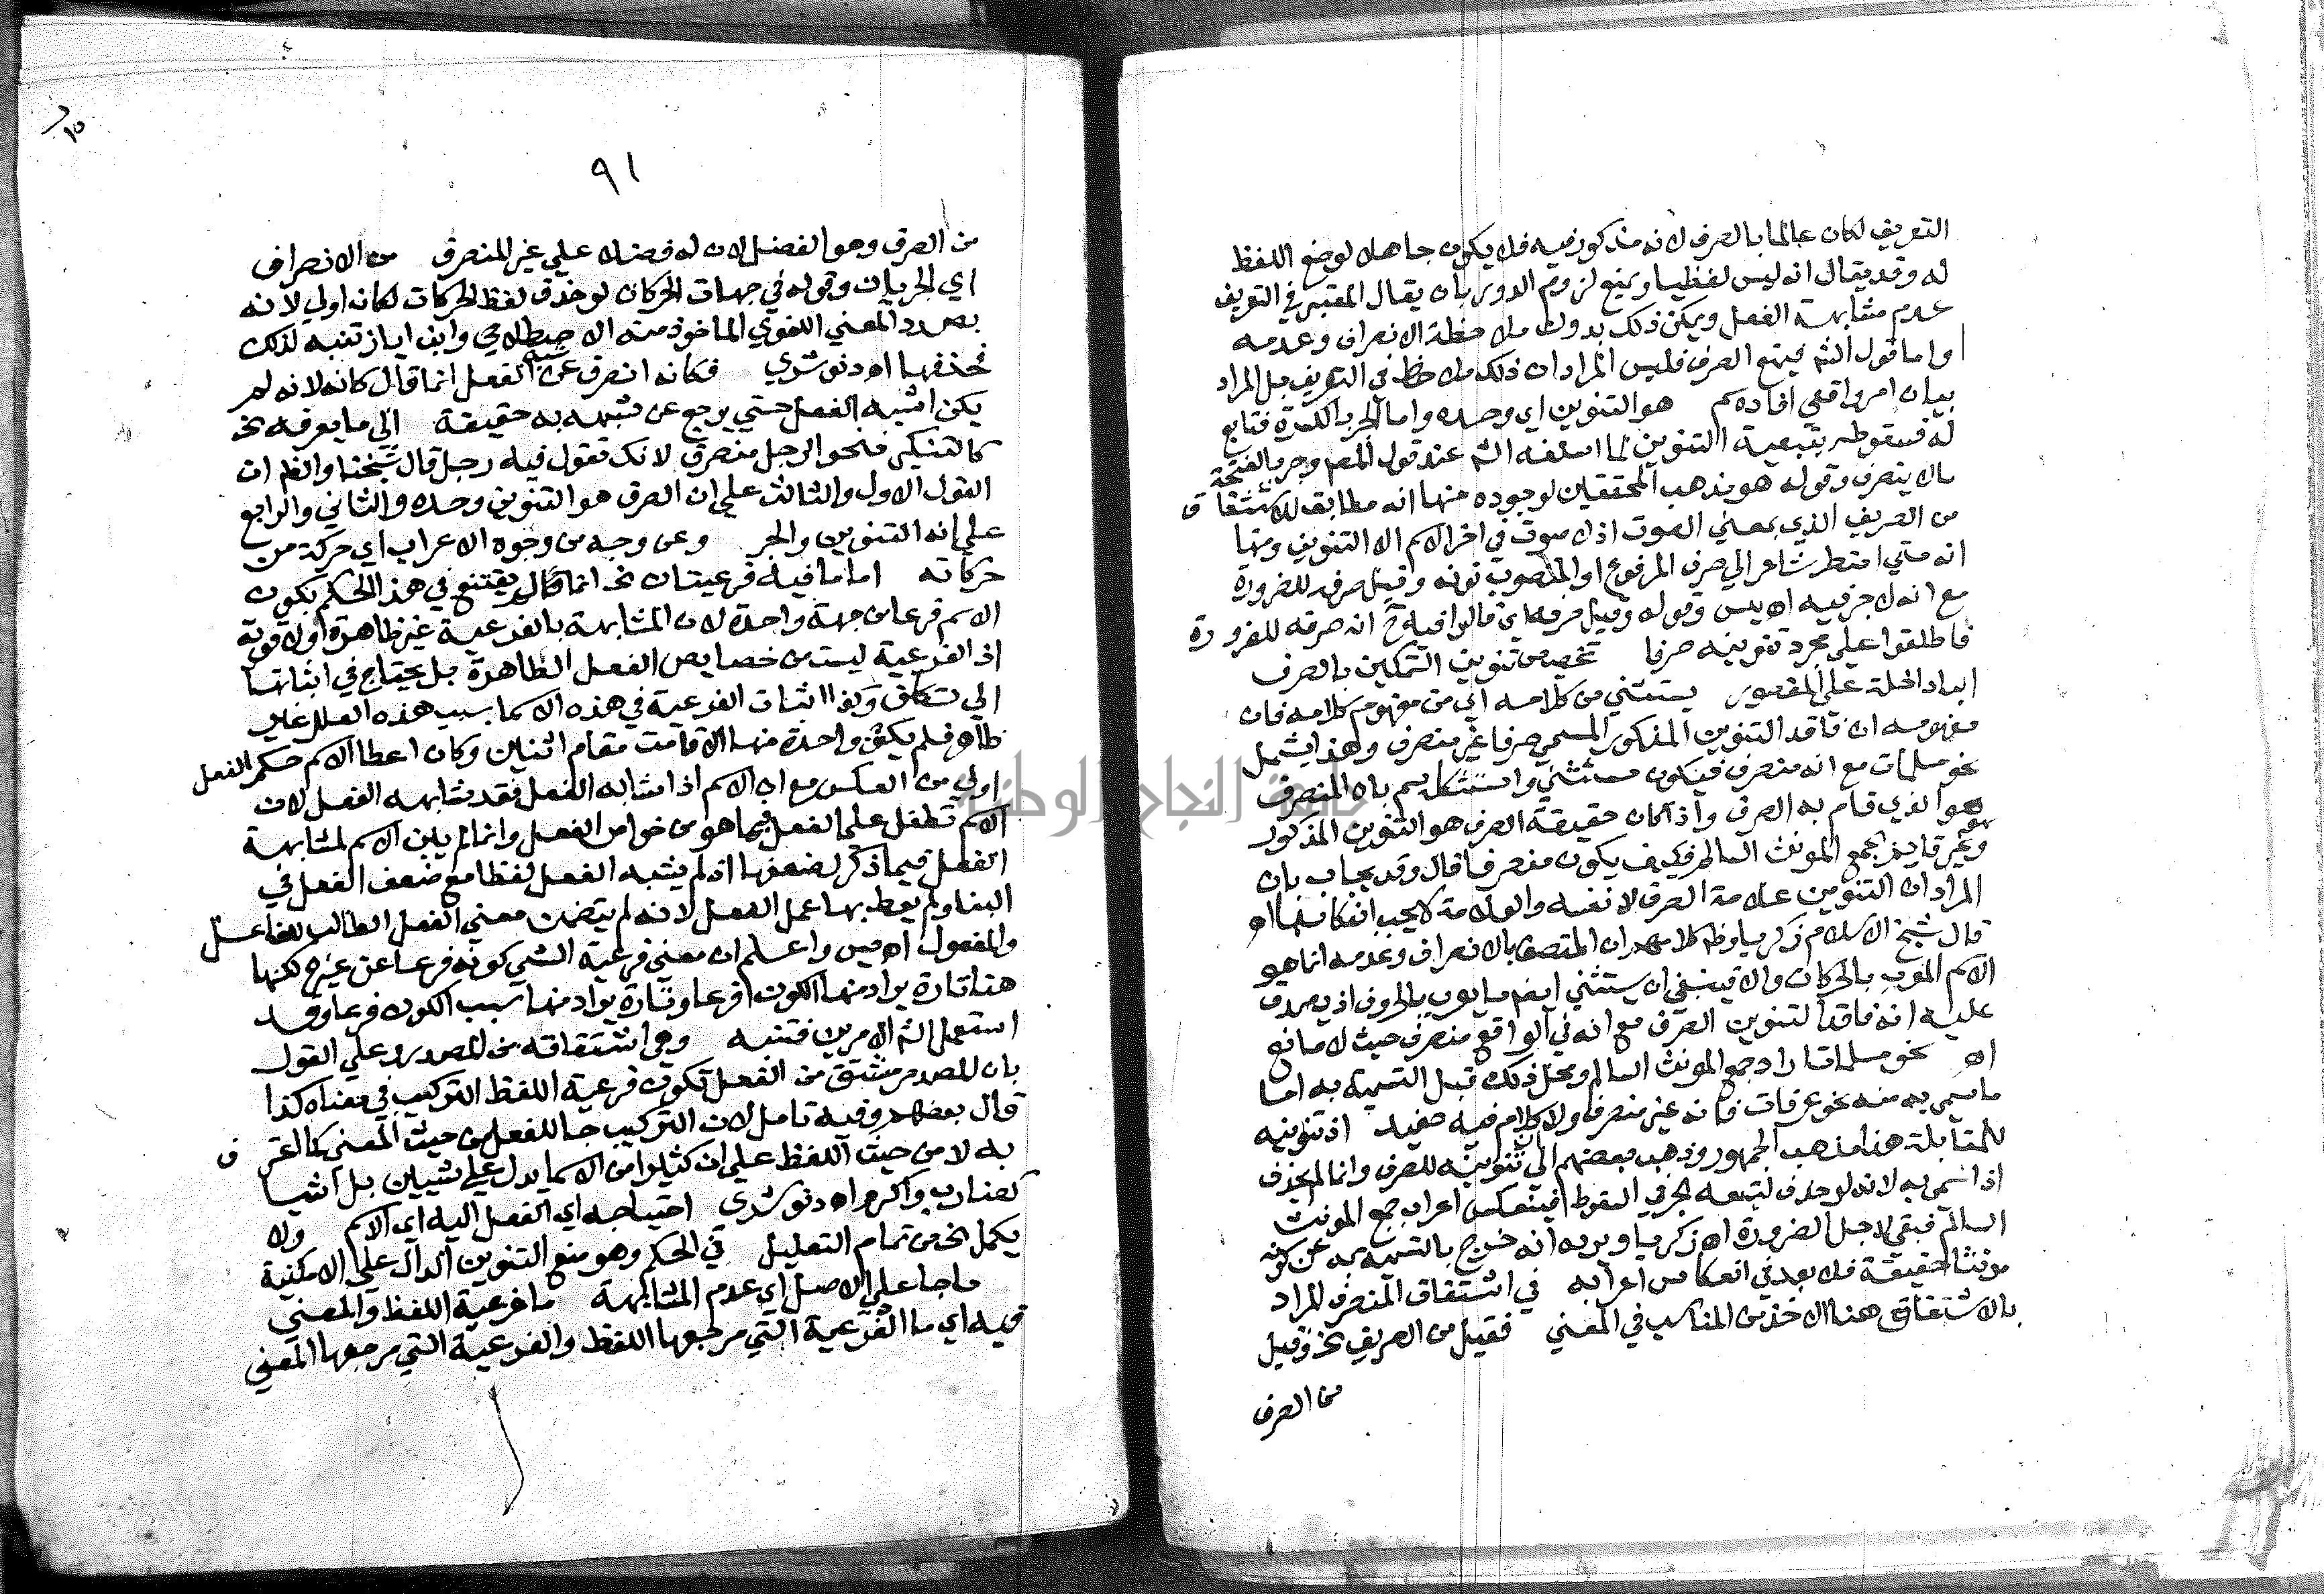 التعريف لكان عالما بالصرف لانه مذكور فيه فلا يكون جاهلا لوضع اللفظ
له وقد يقال انه ليس لفظيا ويمنع لزوم الدور بان يقال المعتبر في التعريف
عدم مشابهة الفعل ويمكن ذلك بدون ملاحظة الانصراف وعدمه
واما قول الشم فيمتنع الصرف فليس المراد ان ذلك ملاحظ في التعريف بل المراد
بيان امر واقعي افاده سم هو التنوين اي وحده واما الجر بالكسرة فتابع
له فسقوطه بتبعية التنوين لما اسلفه الشم عند قول المصم وجر بالفتحة
مالا ينصرف وقوله هو مذهب المحققين لوجوه منها انه مطابق للاشتقاق
من الصريف الذي بمعني الصوت اذ لا صوت في اخر الاسم الا التنوين ومنها
انه متي اضطر شاعر الي صرف المرفوع او المنصوب نونه وقيل صرفه للضرورة
مع انه لا جر فيه اه يس وقوله وقيل صرفه اي قالوا فيه ح انه صرفه للضرورة
فاطلقوا علي مجرد تنوينه صرفا تخصيص تنوين التمكين بالصرف
الباء داخلة علي المقصور يستثني من كلامه اي من مفهوم كلامه فان
مفهومه ان فاقد التنوين المذكور المسمي صرفا غير منصرف وهذا يشمل
نحو مسلمات مع انه منصرف فيكون مستثني واستشكل سم بان المنصرف
هو الذي قام به الصرف واذا كان حقيقة الصرف هو التنوين المذكور
وهو غير قايم بجمع المونث السالم فكيف يكون منصرفا قال وقد يجاب بان
المراد ان التنوين علامة الصرف لا نفسه والعلامة لا يجب انعكاسها اه
قال شيخ الاسلام زكريا وظ كلامهم ان المتصف بالانصراف وعدمه انما هو
الاسم المعرب بالحركات والا فينبغي ان يستثني ايضم ما يعرب بالحروف اذ يصدق
عليه انه فاقد لتنوين الصرف مع انه في الواقع منصرف حيث لا مانع
اه نحو مسلمات اراد جمع المونث السالم ومحل ذلك قبل التسمية به اما
ما سمي به منه نحو عرفات فانه غير منصرف ولا كلام فيه حفيد اذ تنوينه
للمقابلة هذا مذهب الجمهور وذهب بعضهم الي ان تنوينه للصرف وانما لم يحذف
اذا سمي به لانه لو حذف لتبعه الجر في السقوط فينعكس اعراب جمع المونث
السالم فبقي لاجل الضرورة اه زكريا ويرده انه خرج بالتسمية به عن كونه
مونثا حقيقة فلا بعد في انعكاس اعرابه في اشتقاق المنصرف المراد
بالاشتقاق هنا الاخذ من المناسب في المعني فقيل من الصريف نحـ وقيل
من الصرف
٩١
من الصرف وهو الفضل لان له فضلا علي غير المنصرف من الانصراف
اي الجريان وقوله في جهات الحركات لو حذف لفظ الحركات لكان اولي لانه
بصدد المعني اللغوي الماخوذ منه الاصطلاحي وابن اياز تنبه لذلك
فحذفها اه دنوشري فكانه انصرف عن شبه الفعل انما قال كانه لانه لم
يكن اشبه الفعل حتي يرجع عن شبهه به حقيقة الي ما يعرفه نحـ
كالتنكير فنحو الرجل منصرف لانك تقول فيه رجل قال شيخنا واعلم ان
القول الاول والثالث علي ان الصرف هو التنوين وحده والثاني والرابع
علي انه التنوين والجر وعن وجه من وجوه الاعراب اي حركة من
حركاته اما ما فيه فرعيتان نحـ انما قال لم يقتنع في هذا الحكم بكون
الاسم فرعا من جهة واحدة لان المشابهة بالفرعية غير ظاهرة ولا قوية
اذ الفرعية ليست من خصايص الفعل الظاهرة بل يحتاج في اثباتها
الي تكلف وكذا اثبات الفرعية في هذه الاسما بسبب هذه العلل غير
ظاهر فلم يكف واحدة منها الا قامت مقام اثنين وكان اعطا الاسم حكم الفعل
اولي من العكس مع ان الاسم اذا شابه الفعل فقد شابهه الفعل لان
الاسم تطفل علي الفعل فيما هو من خواص الفعل وانما لم يبن الاسم لمشابهة
الفعل فيما ذكر لضعفها اذ لم يشبه الفعل لفظا مع ضعف الفعل في
البنا ولم يعط بها عمل الفعل لانه لم يتضمن معني الفعل الطالب للفاعل
والمفعول اه يس واعلم ان معني فرعية الشي كونه فرعا عن غيره لكنها
هنا تارة يراد منها الكون فرعا وتارة يراد منها سبب الكون فرعا وقد
استعمل الشم الامرين فتنبه وهي اشتقاقه من المصدر وعلي القول
بان المصدر مشتق من الفعل تكون فرعية اللفظ التركيب في معناه كذا
قال بعضهم وفيه تامل لان التركيب جا للفعل من حيث المعني كما اعترف
به لا من حيث اللفظ علي ان كثيرا من الاسما يدل علي شيين بل اشيا
كضارب واكرم اه دنوشري احتياجه اي الفعل اليه اي الاسم ولا
يكمل نحـ من تمام التعليل في الحكم وهو منع التنوين الدال علي الامكنية
ما جا علي الاصل اي عدم المشابهة ما فرعية اللفظ والمعني
فيه اي ما الفرعية التي مرجعها اللفظ والفرعية التي مرجعها المعني
جامعة النجاح الوطنية